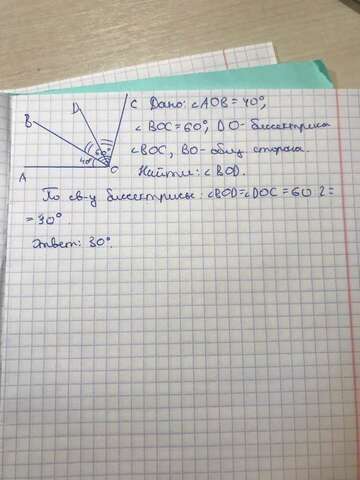 C
D
B
60°
40°
A
O
Дано: ∠AOB = 40°,
∠BOC = 60°, DO - биссектриса
∠BOC, BO - общ. сторона.
Найти: ∠BOD.
По св-у биссектрисы: ∠BOD = ∠DOC = 60 : 2 =
= 30°
Ответ: 30°.